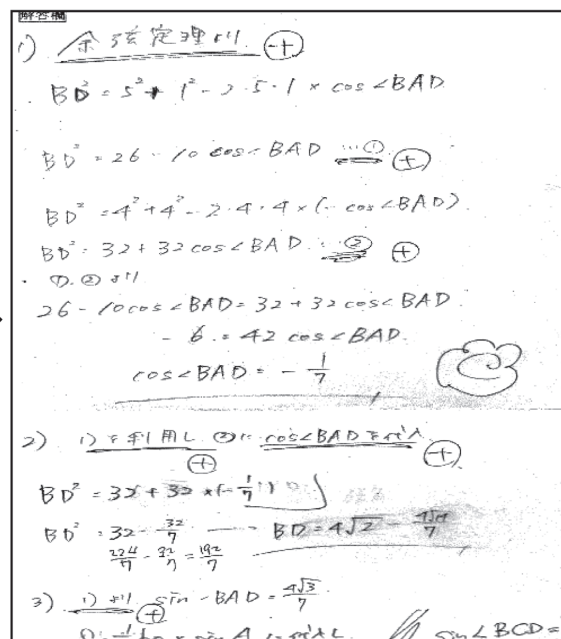 解答欄
1) 余弦定理より ⊕
BD² = 5² + 1² - 2・5・1 × cos∠BAD
BD² = 26 - 10 cos∠BAD …① ⊕
BD² = 4² + 4² - 2・4・4 × (- cos∠BAD).
BD² = 32 + 32 cos∠BAD … ② ⊕
①.② より
26 - 10cos∠BAD = 32 + 32 cos∠BAD
- 6 = 42 cos∠BAD.
cos∠BAD = - 1/7
2) 1)を利用し ②に cos∠BADを代入 ⊕ ⊕
BD² = 32 + 32 × (- 1/7)
BD² = 32 - 32/7 BD = 4√2 -
224/7 - 32/7 = 192/7
3) 1)より sin∠BAD = 4√3/7
⊕
sin∠BCD =